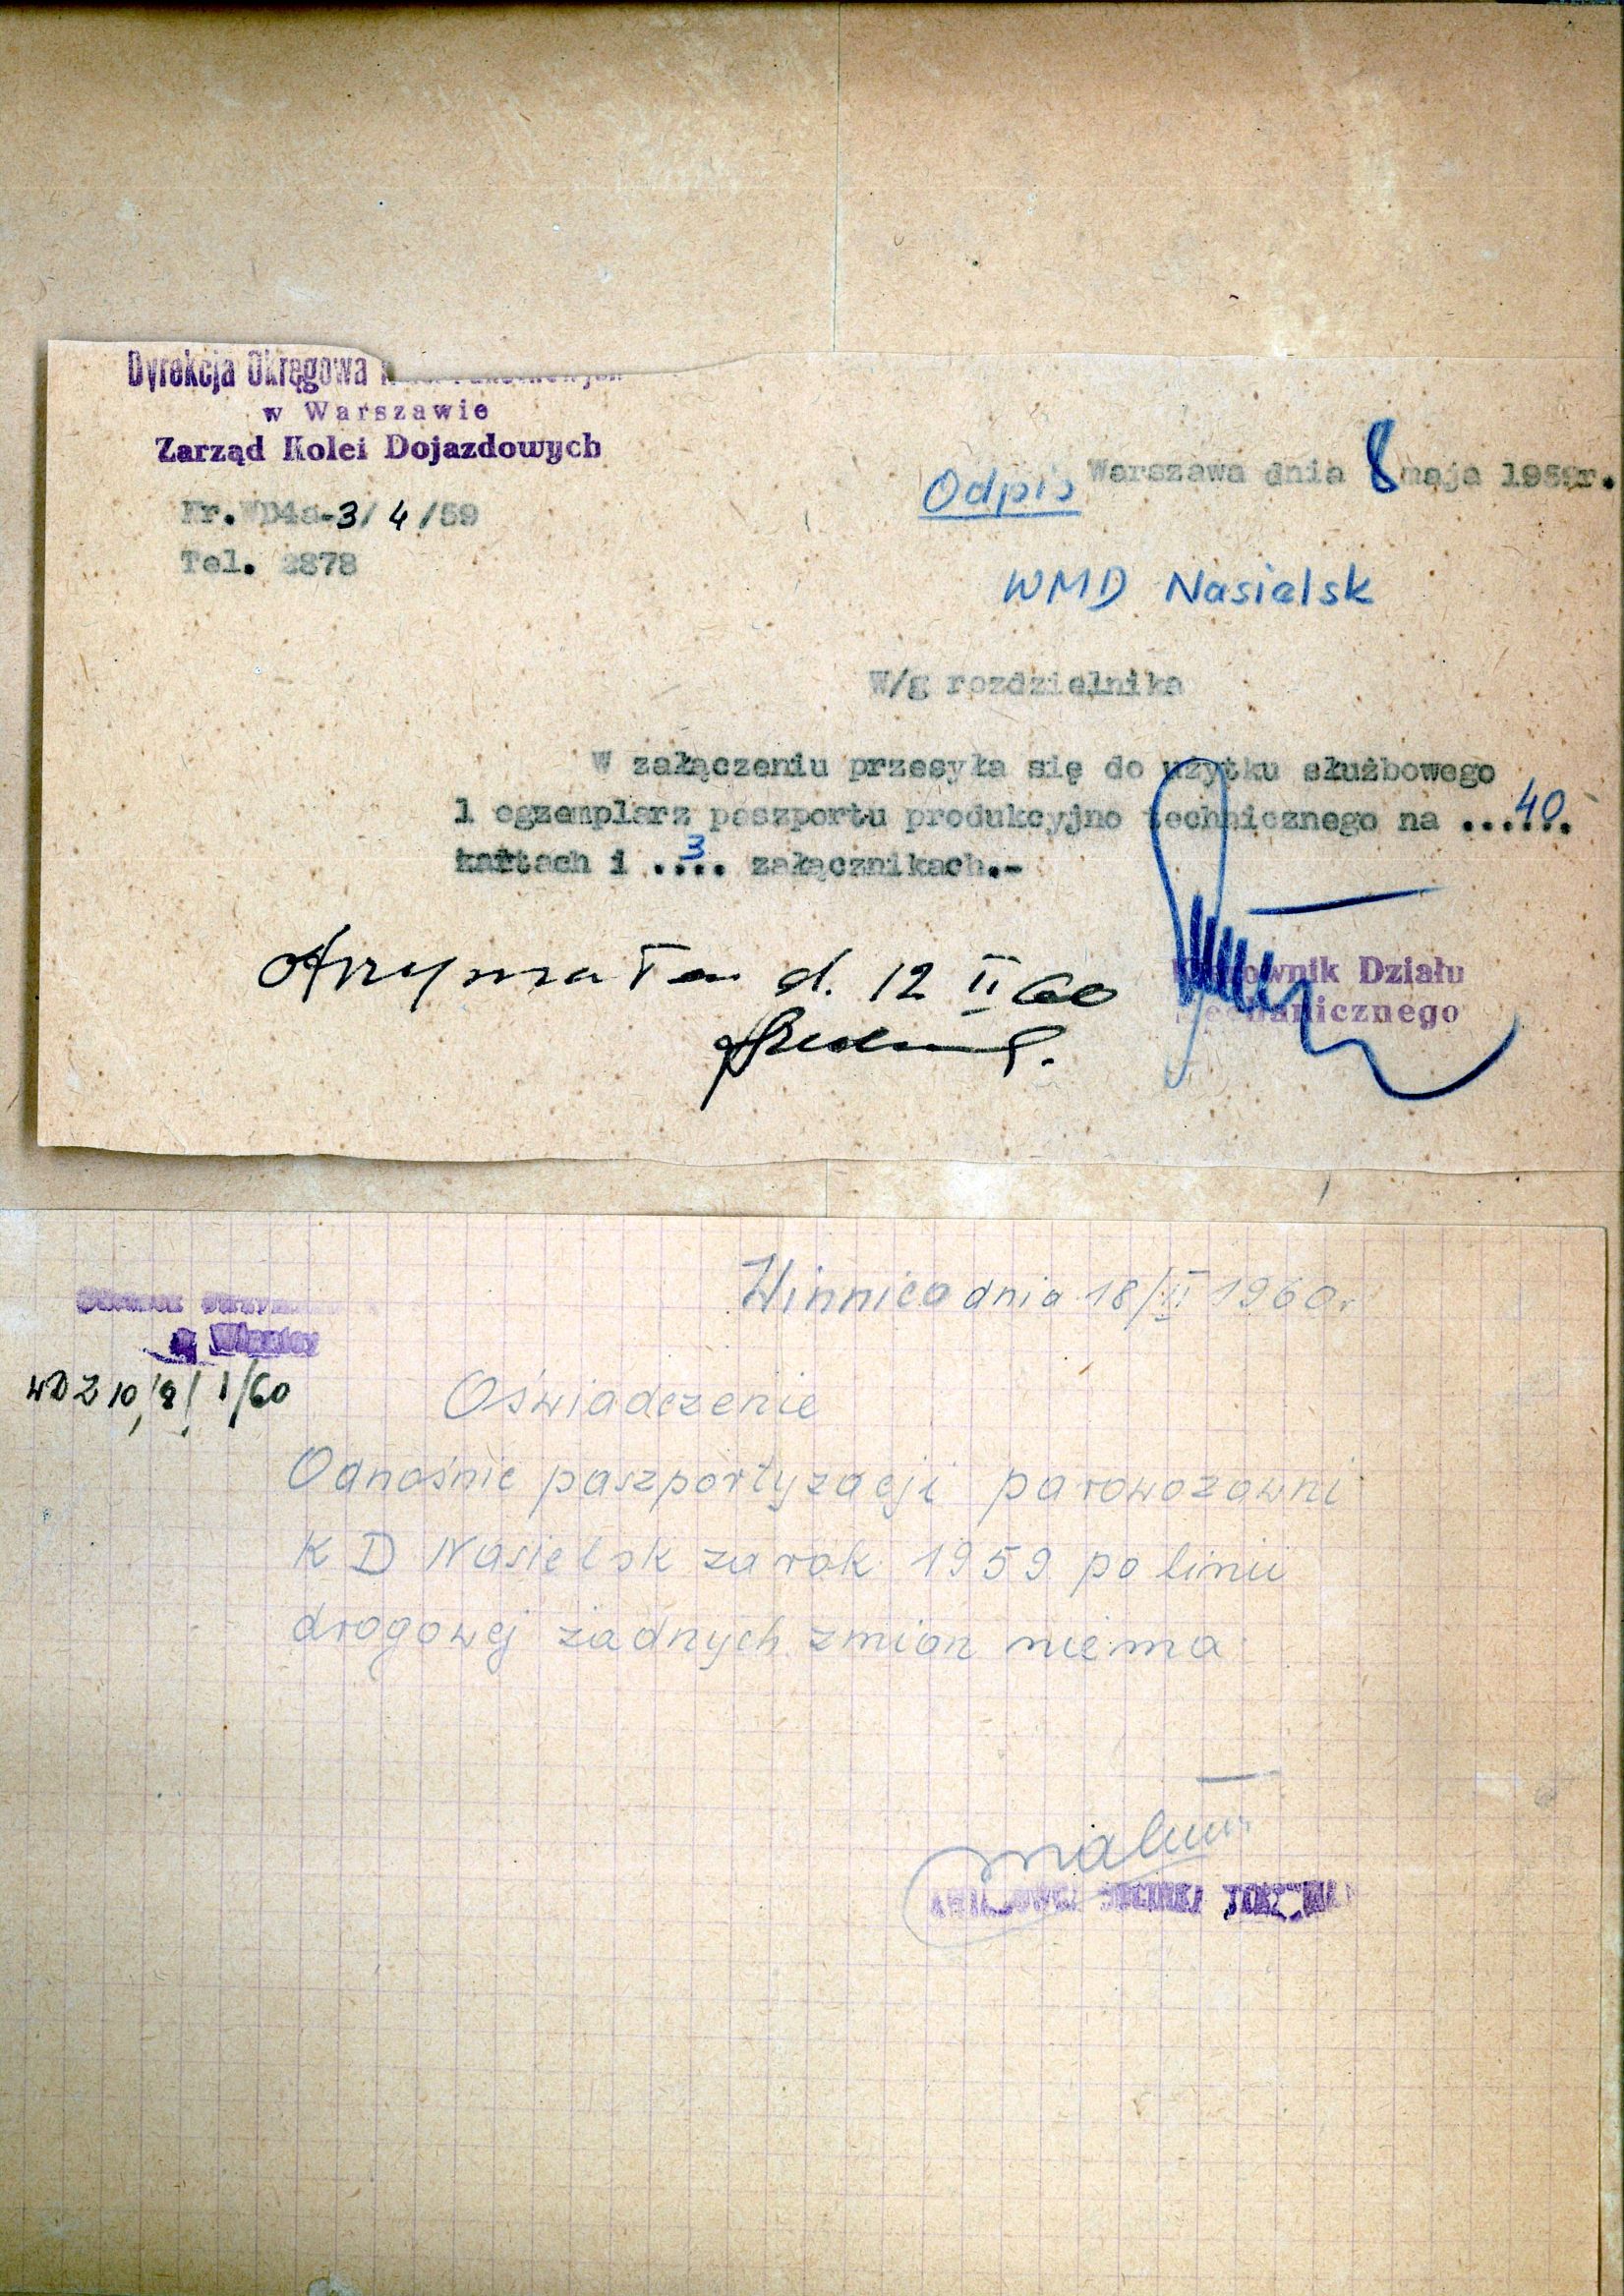 Dyrekcja Okręgowa
w Warszawie
Zarząd Kolei Dojazdowych
Odpis Warszawa dnia 8 maja 1959r.
Nr. WD4a-3/4/59
Tel. 2878
WMD Nasielsk
W/g rozdzielnika
W załączeniu przesyła się do użytku służbowego
1 egzemplarz paszportu produkcyjno technicznego na ...40.
kartach i .3.. załącznikach.-
otrzymałem d. 12 II 60
Kierownik Działu
Mechanicznego
Winnica dnia 18/II 1960r
w Winnicy
Oświadczenie
Odnośnie paszportyzacji parowozowni
KD Nasielsk za rok 1959 po linii
drogowej żadnych zmian niema